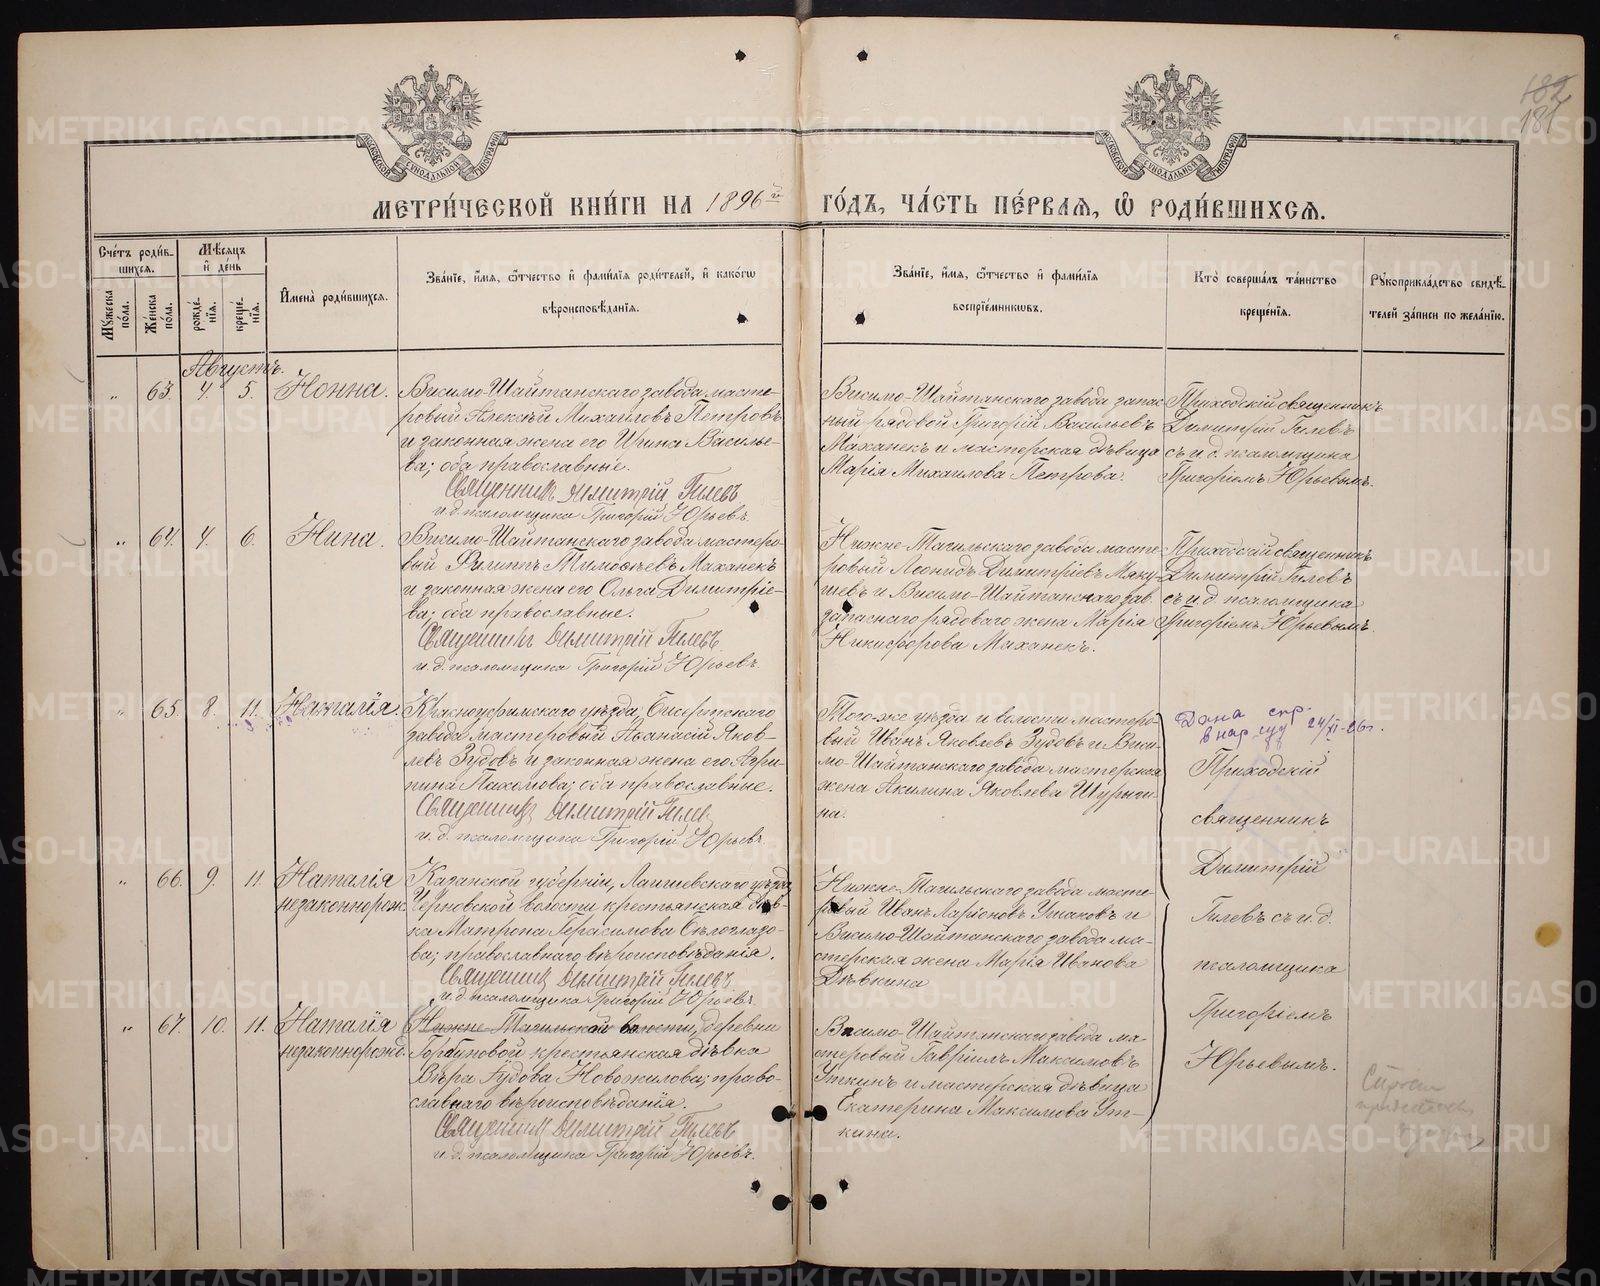 182
181
МОСКОВСКОЙ СУНОДАЛЬНОЙ ТИПОГРАФIИ
МОСКОВСКОЙ СУНОДАЛЬНОЙ ТИПОГРАФIИ
МЕТРИ́ЧЕСКОЙ КНИ́ГИ НА 1896й ГО́ДЪ, ЧА́СТЬ ПЕ́РВАЯ, Ѡ РОДИ́ВШИХСЯ.
Сче́тъ роди́в-
шихся.
Мѣсяцъ
и́ де́нь
Мꙋ́жеска
по́ла.
Же́нска
по́ла.
рожде́-
нїя.
креще́-
нїя.
И҆мена̀ роди́вшихся.
Зва́нїе, и҆́мя, ѻ҆́тчество и҆ фами́лїя роди́телей, и҆ како́гѡ
вѣроисповѣ́данїя.
Зва́нїе, и҆́мя, ѻ҆́тчество и҆ фами́лїя
воспрїе́мникѡвъ.
Кто̀ соверша́лъ та́инство
креще́нїя.
Рꙋкоприкла́дство свидѣ́-
телей за́писи по жела́нїю.
Августъ.
" 63. 4. 5. Нонна.
Висимо-Шайтанскаго завода масте-
ровый Алексѣй Михаиловъ Петровъ
и законная жена его Ирина Василье-
ва; оба православные.
Священникъ Димитрій Гилевъ
и.д. псаломщика Григорій Юрьевъ.
Висимо-Шайтанскаго завода запас-
ный рядовой Григорій Васильевъ
Маханекъ и мастерская дѣвица
Марія Михаилова Петрова.
Приходскій священникъ
Димитрій Гилевъ
съ и.д. псаломщика
Григоріемъ Юрьевымъ.
" 64. 4. 6. Нина.
Висимо-Шайтанскаго завода мастеро-
вый Филиппъ Тимоѳеевъ Маханекъ
и законная жена его Ольга Димитріе-
ва; оба православные.
Священникъ Димитрій Гилевъ
и.д. псаломщика Григорій Юрьевъ.
Нижне-Тагильскаго завода масте-
ровый Леонидъ Димитріевъ Маку-
шевъ и Висимо-Шайтанскаго зав.
запаснаго рядоваго жена Марія
Никифорова Маханекъ.
Приходскій священникъ
Димитрій Гилевъ
съ и.д. псаломщика
Григоріемъ Юрьевымъ.
" 65. 8. 11. Наталія.
Красноуфимскаго уѣзда, Бисертскаго
завода мастеровый Аѳанасій Яков-
левъ Зудовъ и законная жена его Агри-
пина Пахомова; оба православные.
Священникъ Димитрій Гилевъ
и.д. псаломщика Григорій Юрьевъ.
Того-же уѣзда и волости мастеро-
вый Иванъ Яковлевъ Зудовъ и Виси-
мо-Шайтанскаго завода мастерская
жена Акилина Яковлева Шурыги-
на.
Дана спр.
в нар суд 24/XI-26г.
Приходскій
священникъ
Димитрій
Гилевъ съ и.д.
псаломщика
Григоріемъ
Юрьевымъ.
" 66. 9. 11. Наталія
незаконнорож.
Казанской губерніи, Лаишевскаго уѣзда,
Черновской волости крестьянская дѣв-
ка Матрона Герасимова Бѣлоглазо-
ва; православнаго вѣроисповѣданія.
Священникъ Димитрій Гилевъ
и.д. псаломщика Григорій Юрьевъ.
Нижне-Тагильскаго завода масте-
ровый Иванъ Ларіоновъ Ушаковъ и
Висимо-Шайтанскаго завода ма-
стерская жена Марія Иванова
Дѣвкина
" 67. 10. 11. Наталія
незаконнорожд.
Нижне-Тагильской волости, деревни
Горбуновой крестьянская дѣвка
Вѣра Новожилова; право-
славнаго вѣроисповѣданія.
Священникъ Димитрій Гилевъ
и.д. псаломщика Григорій Юрьевъ.
Висимо-Шайтанскаго завода ма-
стеровый Гавріилъ Максимовъ
Уткинъ и мастерская дѣвица
Екатерина Максимова Ут-
кина.